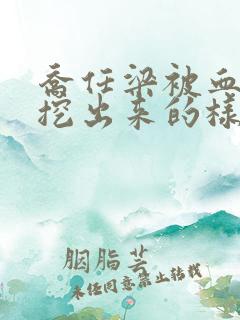 乔任梁被血
挖出来的样
胭脂芸
未任同意禁止转载